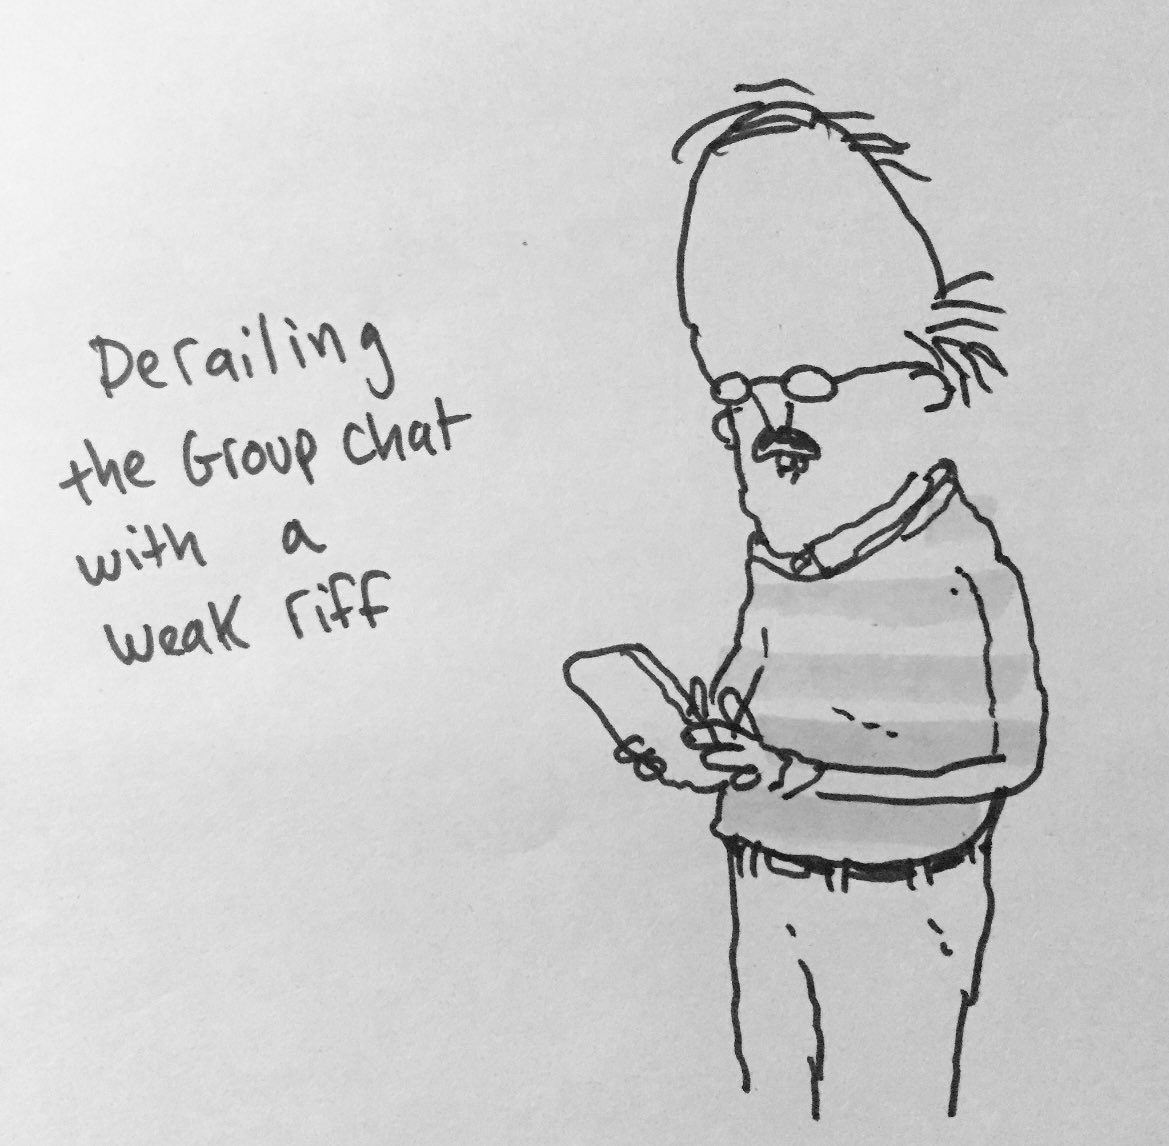 Derailing
the Group chat
with a
weak riff